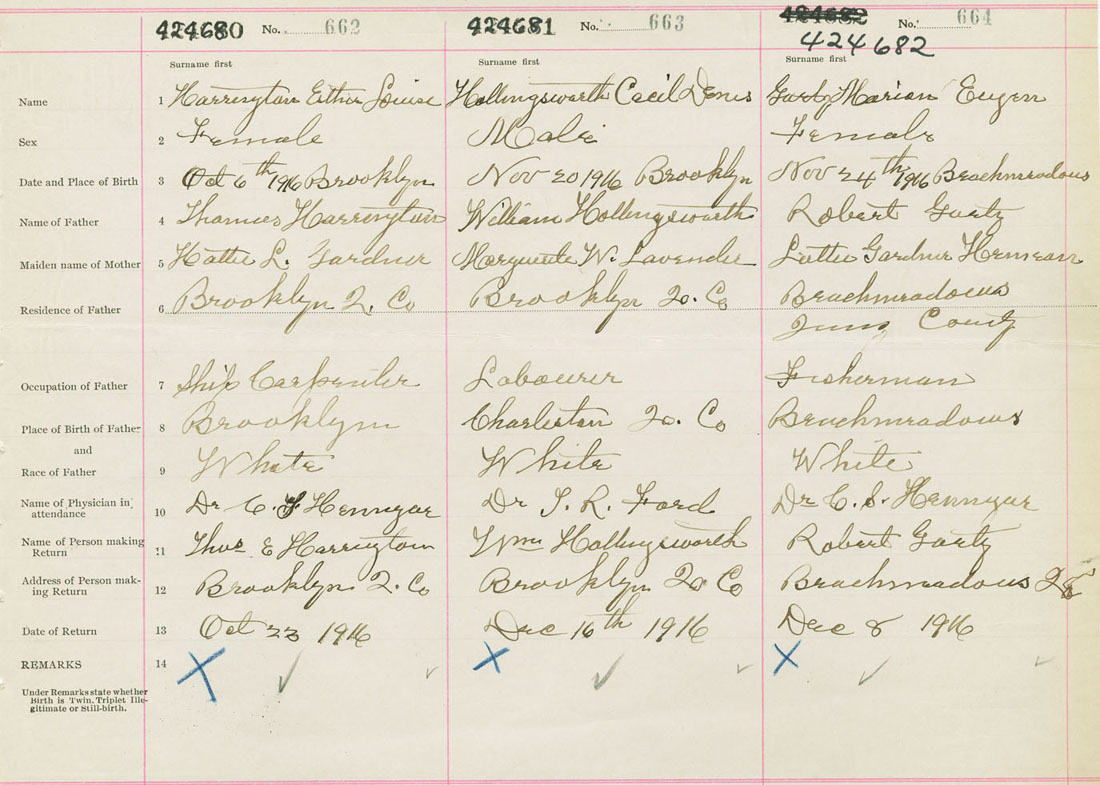 424680 No. 662 424681 No. 663 424682 No. 664
424682
Surname first Surname first Surname first
Name 1 Harrington Esther Louise Hollingsworth Cecil Denis Marion Eugen
Sex 2 Female Male Female
Date and Place of Birth 3 Oct 6th 1916 Brooklyn Nov 20 1916 Brooklyn Nov 24th 1916 Beachmeadows
Name of Father 4 Harrington William Hollingsworth Robert
Maiden name of Mother 5 Hattie L. Gardner Marguerite W. Lavender Lottie Gardner
Residence of Father 6 Brooklyn Q. Co Brooklyn Q. Co Beachmeadows
Queens County
Occupation of Father 7 Ship Carpenter Labourer Fisherman
Place of Birth of Father 8 Brooklyn Charleston Q. Co Beachmeadows
and
Race of Father 9 White White White
Name of Physician in attendance 10 Dr C. S Hennigar Dr T. R. Ford Dr C. S. Hennigar
Name of Person making Return 11 Thos E Harrington Wm Hollingsworth Robert
Address of Person making Return 12 Brooklyn Q. Co Brooklyn Q Co Beachmeadows Q Co
Date of Return 13 Oct 23 1916 Dec 16th 1916 Dec 8 1916
REMARKS 14
Under Remarks state whether
Birth is Twin, Triplet Ille-
gitimate or Still-birth.